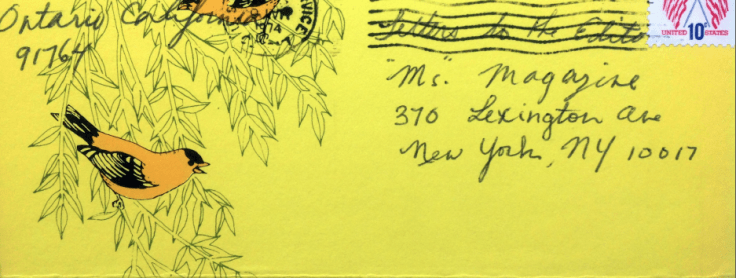 Ontario California
91764
VICE
Letters to the Editor
"Ms." Magazine
370 Lexington Ave
New York, NY 10017
UNITED 10c STATES